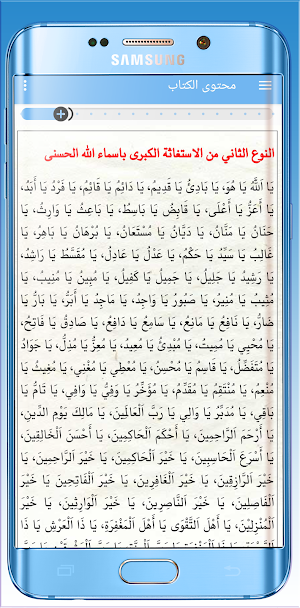 SAMSUNG
محتوى الكتاب
النوع الثاني من الاستغاثة الكبرى باسماء الله الحسنى
يَا اَللهُ يَا هُوَ، يَا بَادِئُ يَا قَدِيمُ، يَا دَائِمُ يَا قَائِمُ، يَا فَرْدُ يَا أَبَدُ،
يَا أَعَزُّ يَا أَعْلَى، يَا قَابِضُ يَا بَاسِطُ، يَا بَاعِثُ يَا وَارِثُ، يَا
حَنَانُ يَا مَنَّانُ، يَا دَيَّانُ يَا مُسْتَعَانُ، يَا بُرْهَانُ يَا بَاهِرُ، يَا
غَالِبُ يَا سَيِّدُ يَا حَكَمُ، يَا عَدْلُ يَا عَادِلُ، يَا مُقَسِّطُ يَا رَاشِدُ،
يَا رَشِيدُ يَا جَلِيلُ، يَا جَمِيلُ يَا كَفِيلُ، يَا مُبِينُ يَا مُنِيبُ، يَا
مُثِيبُ يَا مُنِيرُ، يَا صَبُورُ يَا وَاجِدُ، يَا مَاجِدُ يَا أَبَرُّ، يَا بَارُّ يَا
ضَارُّ، يَا نَافِعُ يَا مَانِعُ، يَا سَامِعُ يَا دَافِعُ، يَا صَادِقُ يَا فَاتِحُ،
يَا مُحْيِي يَا مُمِيتُ، يَا مُبْدِئُ يَا مُعِيدُ، يَا مُعِزُّ يَا مُذِلُّ، يَا جَوَادُ
يَا مُتَفَضِّلُ، يَا قَاسِمُ يَا مُحْسِنُ، يَا مُعْطِي يَا مُغْنِي، يَا مُغِيثُ يَا
مُنْعِمُ، يَا مُنْتَقِمُ يَا مُقَدِّمُ، يَا مُؤَخِّرُ يَا وَفِيُّ يَا وَافِي، يَا تَامُّ يَا
بَاقِي، يَا مُدَبِّرُ يَا وَالِي يَا رَبَّ الْعَالَمِينَ، يَا مَالِكَ يَوْمِ الدِّينِ،
يَا أَرْحَمَ الرَّاحِمِينَ، يَا أَحْكَمَ الْحَاكِمِينَ، يَا أَحْسَنَ الْخَالِقِينَ،
يَا أَسْرَعَ الْحَاسِبِينَ، يَا خَيْرَ الْحَاكِمِينَ، يَا خَيْرَ الرَّاحِمِينَ، يَا
خَيْرَ الرَّازِقِينَ، يَا خَيْرَ الْغَافِرِينَ، يَا خَيْرَ الْفَاتِحِينَ، يَا خَيْرَ
الْفَاصِلِينَ، يَا خَيْرَ النَّاصِرِينَ، يَا خَيْرَ الْوَارِثِينَ، يَا خَيْرَ
الْمُنْزِلِينَ، يَا أَهْلَ التَّقْوَى يَا أَهْلَ الْمَغْفِرَةِ، يَا ذَا الْعَرْشِ يَا ذَا